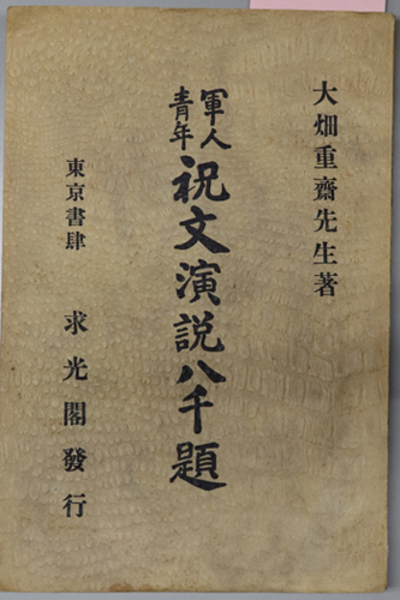 大畑重齋先生著
軍人
青年
祝文演説八千題
東京書肆 求光閣發行